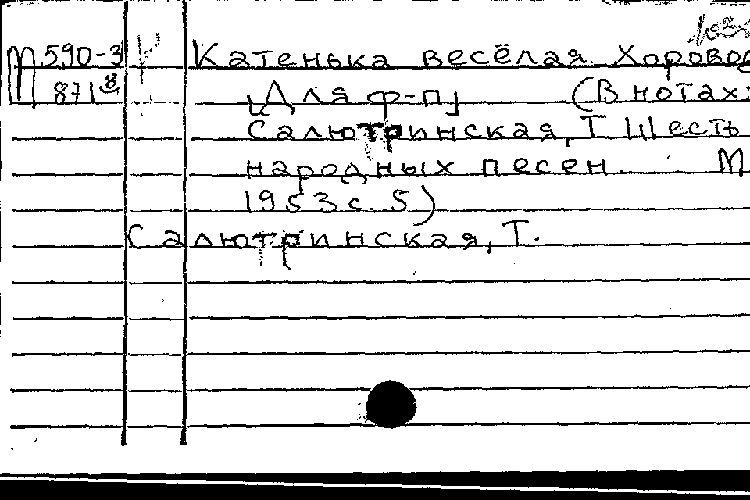 М 590-3 Катенька весёлая. Хоровод
871 [Для ф-п] (В нотах:
Салютринская, Т Шесть
народных песен. М
1953 с. 5)
Салютринская, Т.